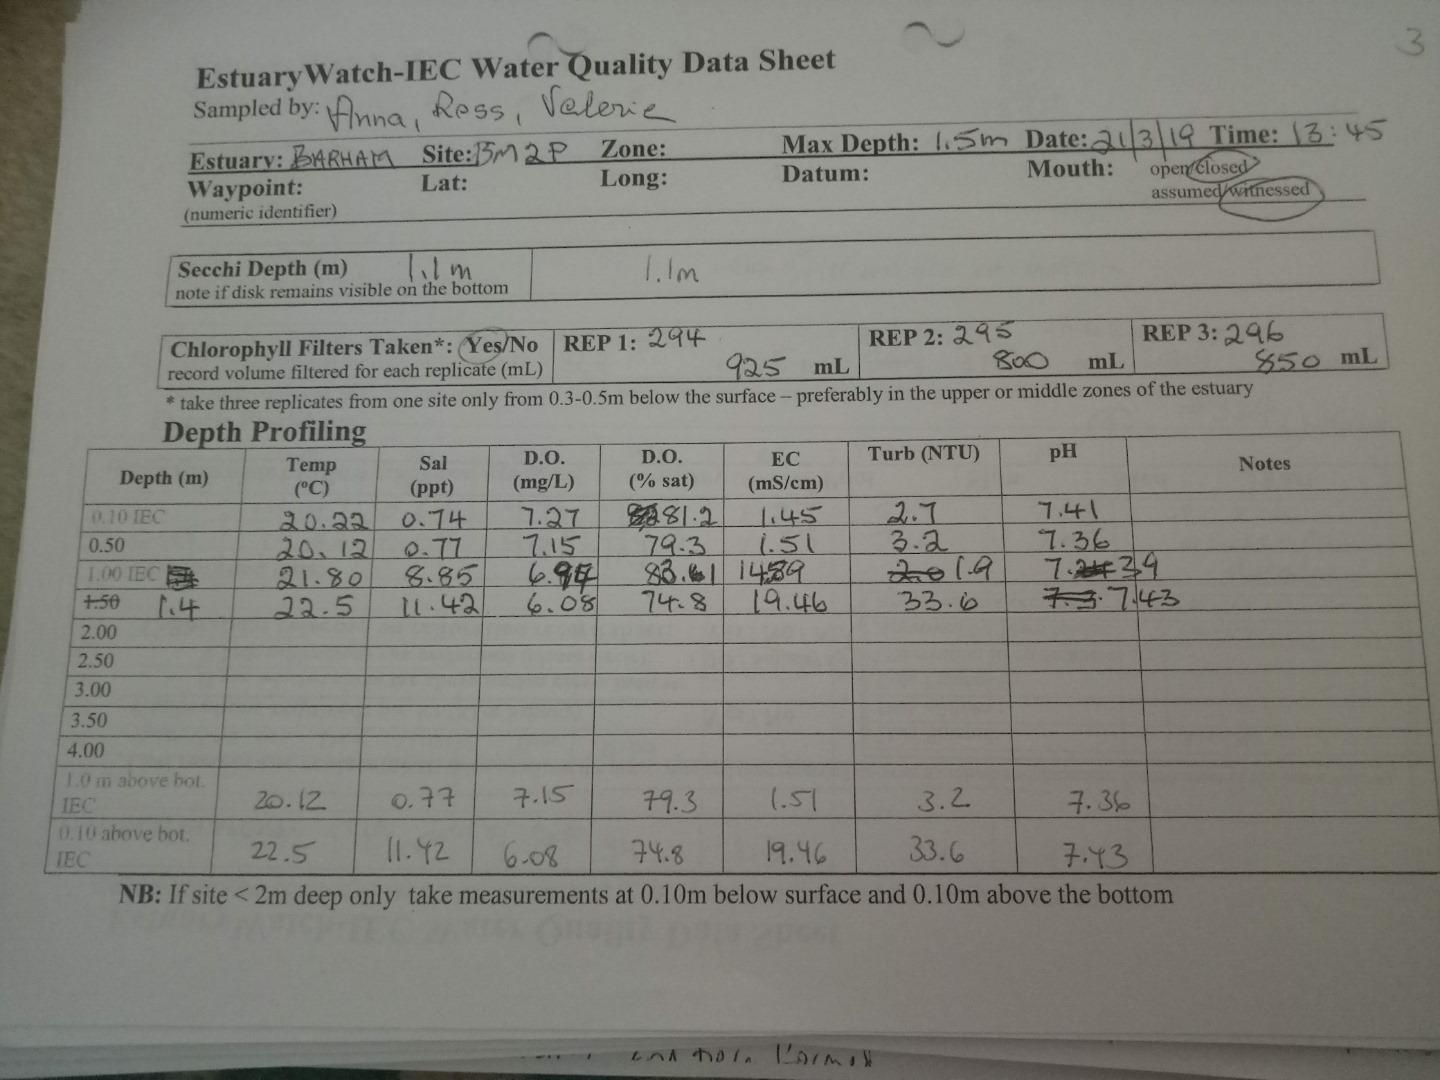 3
EstuaryWatch-IEC Water Quality Data Sheet
Sampled by: Anna, Ross, Valerie
Estuary: BARHAM Site: BM2P Zone: Max Depth: 1.5m Date: 21/3/19 Time: 13:45
Waypoint: Lat: Long: Datum: Mouth: open/closed
(numeric identifier) assumed/witnessed
Secchi Depth (m) 1.1m 1.1m
note if disk remains visible on the bottom
Chlorophyll Filters Taken*: Yes/No REP 1: 294 REP 2: 295 REP 3: 296
record volume filtered for each replicate (mL) 925 mL 800 mL 850 mL
* take three replicates from one site only from 0.3-0.5m below the surface – preferably in the upper or middle zones of the estuary
Depth Profiling
Depth (m) Temp (°C) Sal (ppt) D.O. (mg/L) D.O. (% sat) EC (mS/cm) Turb (NTU) pH Notes
0.10 IEC 20.22 0.74 7.27 81.2 1.45 2.7 7.41
0.50 20.12 0.77 7.15 79.3 1.51 3.2 7.36
1.00 IEC 21.80 8.85 2.0 1.9
1.50 1.4 22.5 11.42 6.08 74.8 19.46 33.6 7.3 7.43
2.00
2.50
3.00
3.50
4.00
1.0 m above bot. IEC 20.12 0.77 7.15 79.3 1.51 3.2 7.36
0.10 above bot. IEC 22.5 11.42 6.08 74.8 19.46 33.6 7.43
NB: If site < 2m deep only take measurements at 0.10m below surface and 0.10m above the bottom